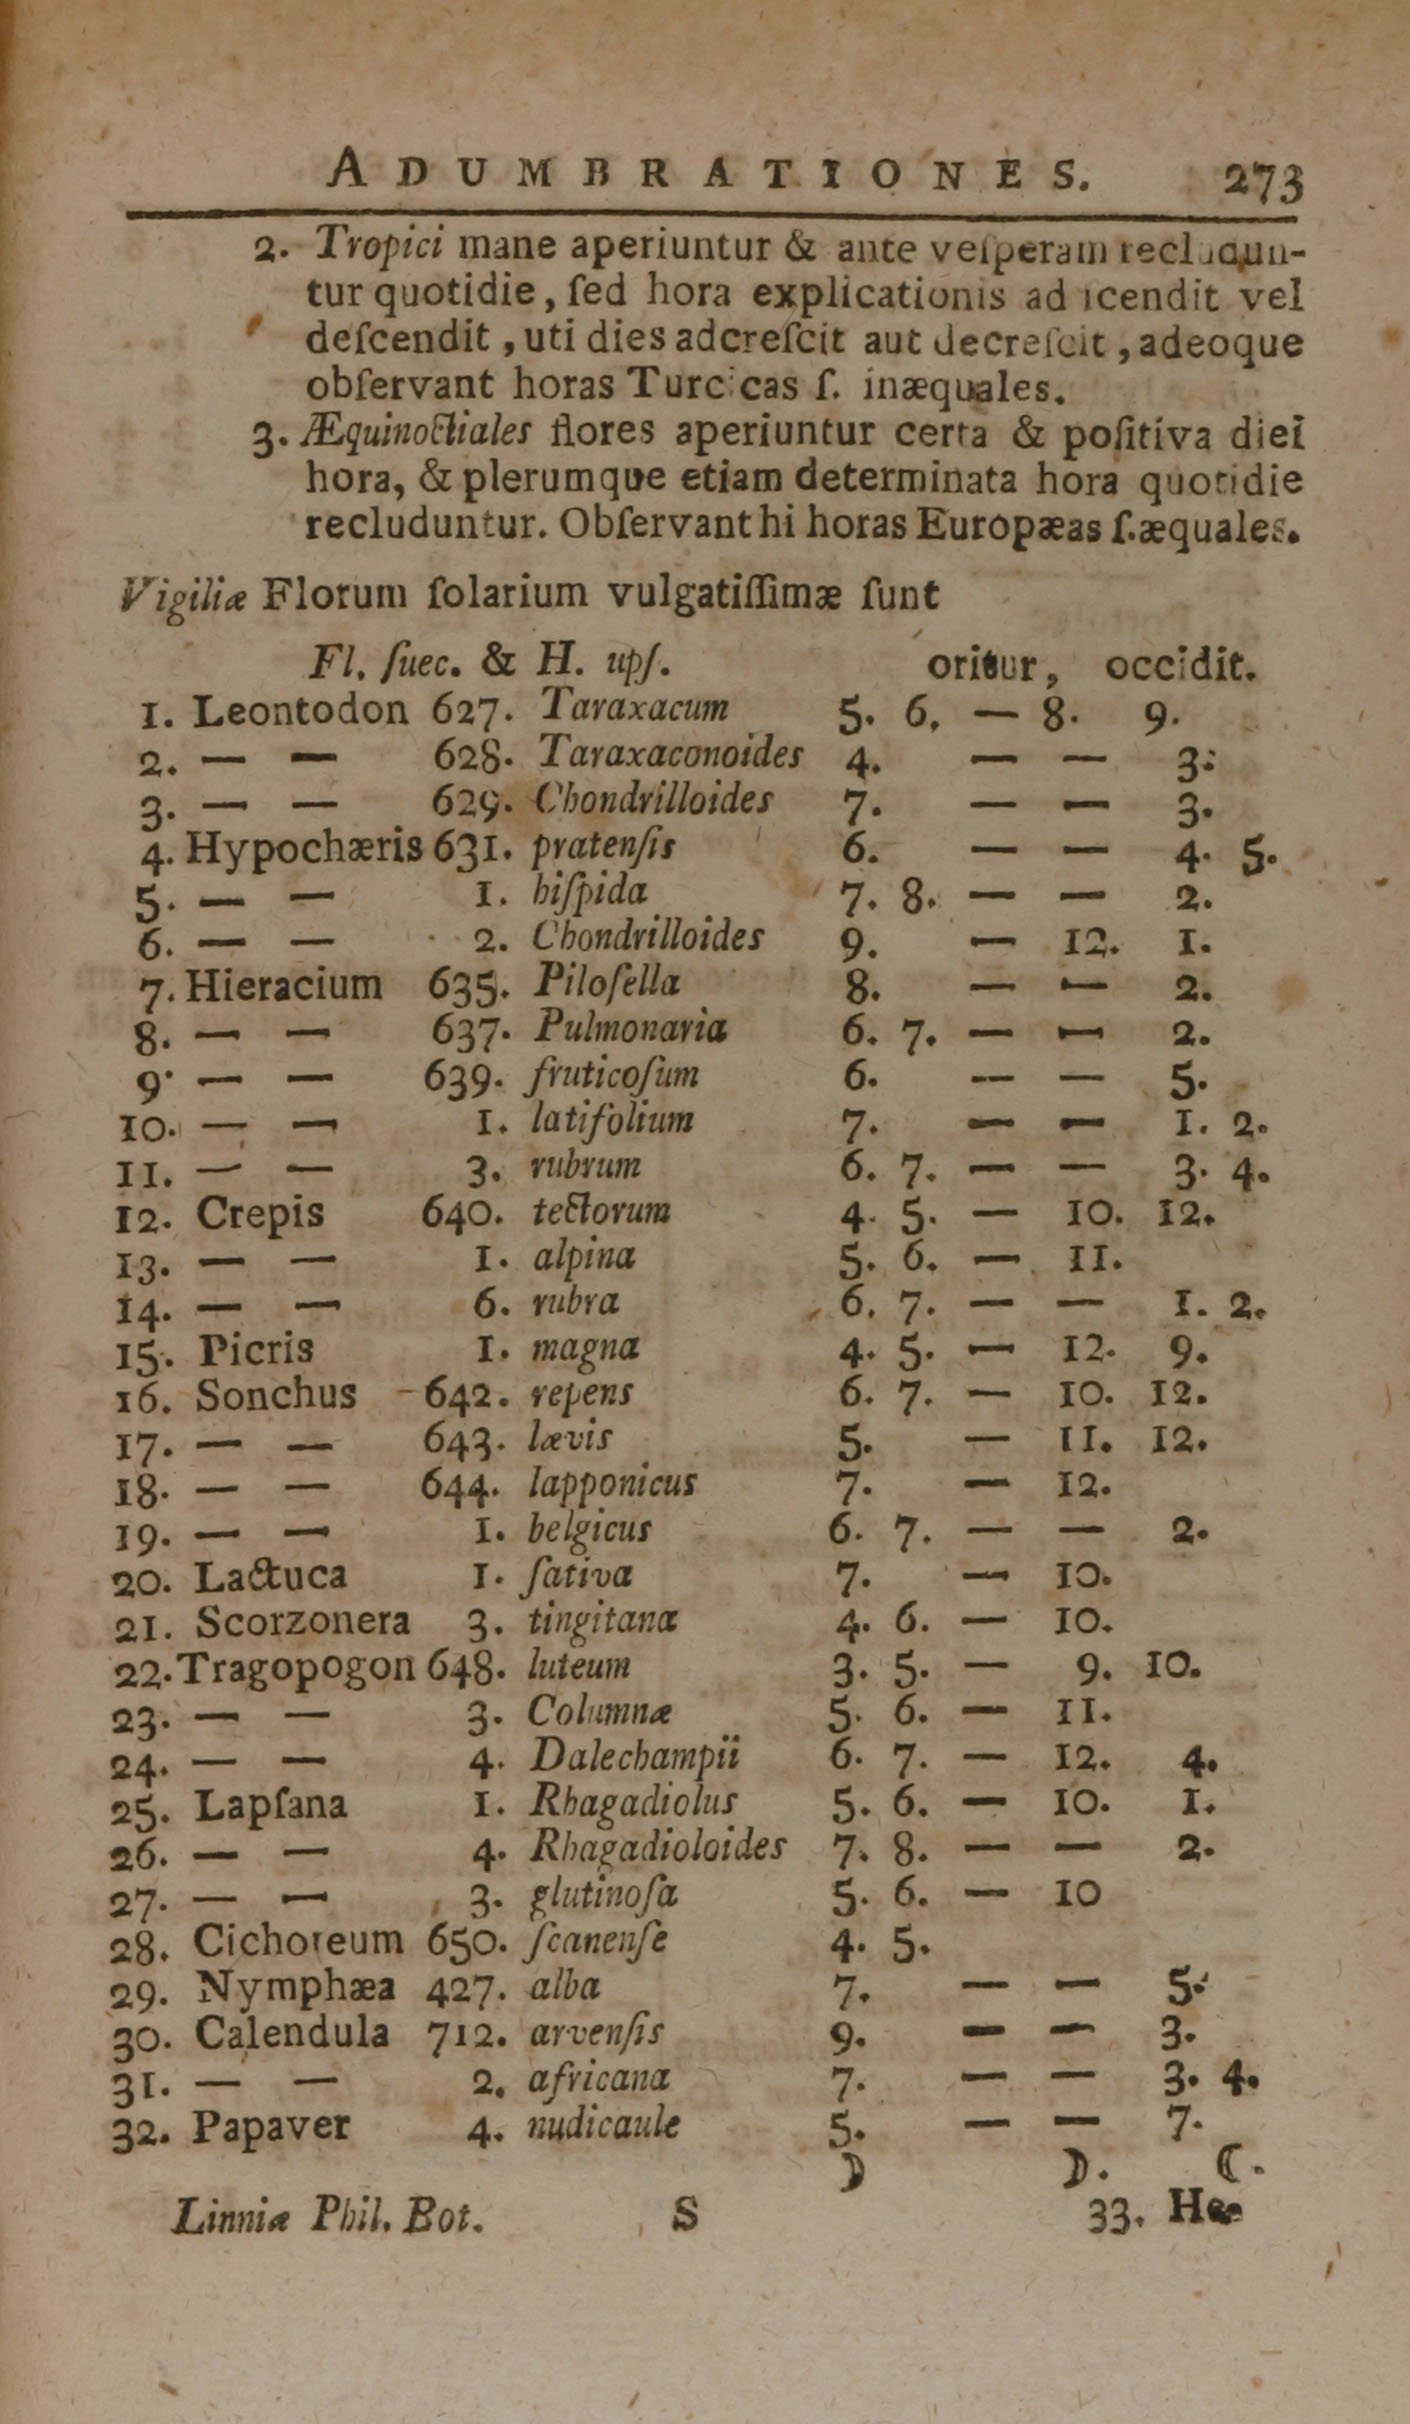 ADUMBRATIONES. 273
2. Tropici mane aperiuntur & ante veſperam recludun-
tur quotidie, ſed hora explicationis adſcendit vel
deſcendit, uti dies adcreſcit aut decreſcit, adeoque
obſervant horas Turcicas ſ. inæquales.
3. Æquinoctiales flores aperiuntur certa & poſitiva diei
hora, & plerumque etiam determinata hora quotidie
recluduntur. Obſervant hi horas Europæas ſ. æquales.
Vigiliæ Florum ſolarium vulgatiſſimæ ſunt
Fl. ſuec. & H. upſ. oritur, occidit.
1. Leontodon 627. Taraxacum 5. 6. — 8. 9.
2. — — 628. Taraxaconoides 4. — — 3.
3. — — 629. Chondrilloides 7. — — 3.
4. Hypochæris 631. pratenſis 6. — — 4. 5.
5. — — 1. hiſpida 7. 8. — — 2.
6. — — 2. Chondrilloides 9. — 12. 1.
7. Hieracium 635. Piloſella 8. — — 2.
8. — — 637. Pulmonaria 6. 7. — — 2.
9. — — 639. fruticoſum 6. — — 5.
10. — — 1. latifolium 7. — — 1. 2.
11. — — 3. rubrum 6. 7. — — 3. 4.
12. Crepis 640. tectorum 4. 5. — 10. 12.
13. — — 1. alpina 5. 6. — 11.
14. — — 6. rubra 6. 7. — — 1. 2.
15. Picris 1. magna 4. 5. — 12. 9.
16. Sonchus 642. repens 6. 7. — 10. 12.
17. — — 643. lævis 5. — 11. 12.
18. — — 644. lapponicus 7. — 12.
19. — — 1. belgicus 6. 7. — — 2.
20. Lactuca 1. ſativa 7. — 10.
21. Scorzonera 3. tingitana 4. 6. — 10.
22. Tragopogon 648. luteum 3. 5. — 9. 10.
23. — — 3. Columnæ 5. 6. — 11.
24. — — 4. Dalechampii 6. 7. — 12. 4.
25. Lapſana 1. Rhagadiolus 5. 6. — 10. 1.
26. — — 4. Rhagadioloides 7. 8. — — 2.
27. — — 3. glutinoſa 5. 6. — 10
28. Cichoreum 650. ſcanenſe 4. 5.
29. Nymphæa 427. alba 7. — — 5.
30. Calendula 712. arvenſis 9. — — 3.
31. — — 2. africana 7. — — 3. 4.
32. Papaver 4. nudicaule 5. — — 7.
☽ ☽. ☾.
Linniæ Phil. Bot. S 33. He-